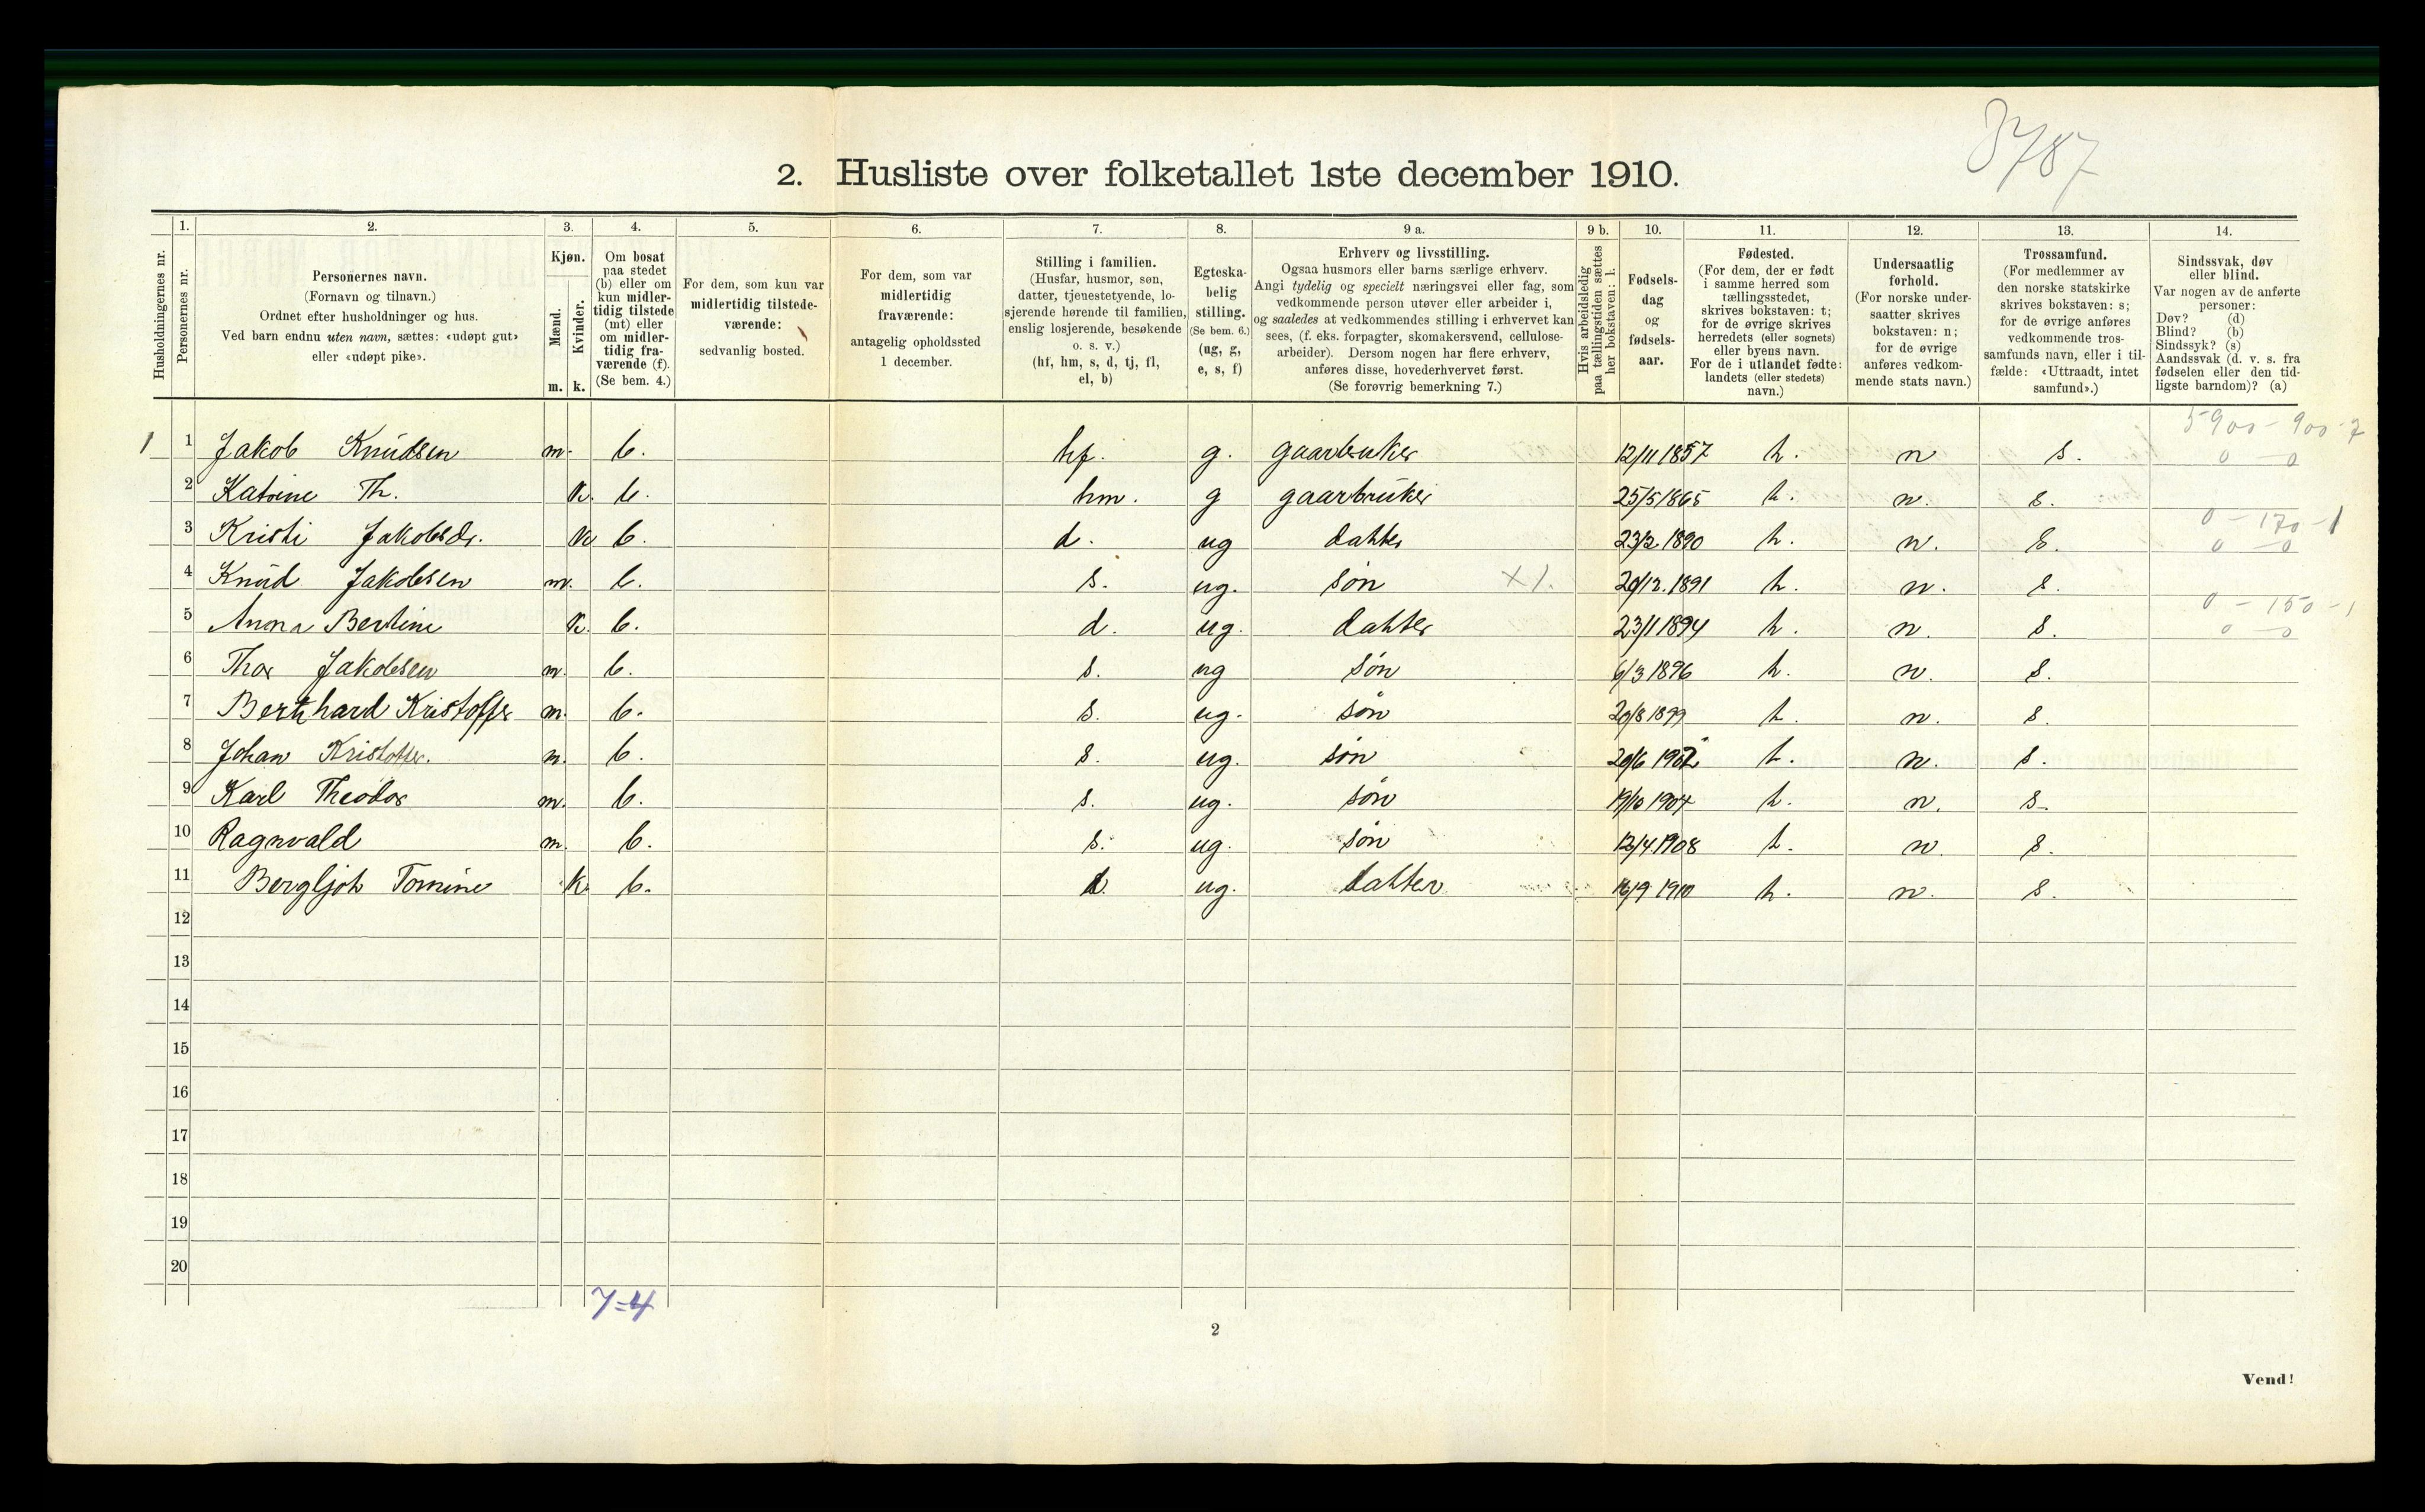 3787
2. Husliste over folketallet 1ste december 1910.
Husholdningernes nr.
1. Personernes nr.
2. Personernes navn.
(Fornavn og tilnavn.)
Ordnet efter husholdninger og hus.
Ved barn endnu uten navn, sættes: «udøpt gut»
eller «udøpt pike».
3. Kjøn.
Mænd. m.
Kvinder. k.
4. Om bosat
paa stedet
(b) eller om
kun midler-
tidig tilstede
(mt) eller
om midler-
tidig fra-
værende (f).
(Se bem. 4.)
5. For dem, som kun var
midlertidig tilstede-
værende:
sedvanlig bosted.
6. For dem, som var
midlertidig
fraværende:
antagelig opholdssted
1 december.
7. Stilling i familien.
(Husfar, husmor, søn,
datter, tjenestetyende, lo-
sjerende hørende til familien,
enslig losjerende, besøkende
o. s. v.)
(hf, hm, s, d, tj, fl,
el, b)
8. Egteska-
belig
stilling.
(Se bem. 6.)
(ug, g,
e, s, f)
9 a. Erhverv og livsstilling.
Ogsaa husmors eller barns særlige erhverv.
Angi tydelig og specielt næringsvei eller fag, som
vedkommende person utøver eller arbeider i,
og saaledes at vedkommendes stilling i erhvervet kan
sees, (f. eks. forpagter, skomakersvend, cellulose-
arbeider). Dersom nogen har flere erhverv,
anføres disse, hovederhvervet først.
(Se forøvrig bemerkning 7.)
9 b. Hvis arbeidsledig
paa tællingstiden sættes
her bokstaven: l.
10. Fødsels-
dag
og
fødsels-
aar.
11. Fødested.
(For dem, der er født
i samme herred som
tællingsstedet,
skrives bokstaven: t;
for de øvrige skrives
herredets (eller sognets)
eller byens navn.
For de i utlandet fødte:
landets (eller stedets)
navn.)
12. Undersaatlig
forhold.
(For norske under-
saatter skrives
bokstaven: n;
for de øvrige
anføres vedkom-
mende stats navn.)
13. Trossamfund.
(For medlemmer av
den norske statskirke
skrives bokstaven: s;
for de øvrige anføres
vedkommende tros-
samfunds navn, eller i til-
fælde: «Uttraadt, intet
samfund».)
14. Sindssvak, døv
eller blind.
Var nogen av de anførte
personer:
Døv? (d)
Blind? (b)
Sindssyk? (s)
Aandssvak (d. v. s. fra
fødselen eller den tid-
ligste barndom)? (a)
5900 - 900 - 7
1 1 Jakob Knudsen m. b. hf. g. gaarbruker 12/11 1857 t. n s. 0 - 0
2 Katrine Th. k. b. hm. g gaarbruker 25/5 1865 t. n. s.
0 - 170 - 1
3 Kristi Jakobsdr. k b. d. ug datter 23/2 1890 t. n. s. 0 - 0
4 Knud Jakobsen m. b. s. ug. søn x 1. 20/12. 1891 t. n. s.
0 - 150 - 1
5 Anna Bertine k. b. d. ug. datter 23/1 1894 t. n. s. 0 - 0
6 Thor Jakobsen m. b. s. ug søn 6/3 1896 t. n. s.
7 Bernhard Kristoffer m. b. s. ug. søn 20/8 1899 t. n. s.
8 Johan Kristoffer. m. b. s. ug. søn 20/6 1902 t. n. s.
9 Karl Theodor m. b. s. ug. søn 19/10 1904 t. n. s.
10 Ragnvald m. b. s. ug. søn 12/4 1908 t. n. s.
11 Bergljot Tomine k. b. d ug. datter 16/9 1910 t. n. s.
12
13
14
15
16
17
18
19
20
7=4
2
Vend!